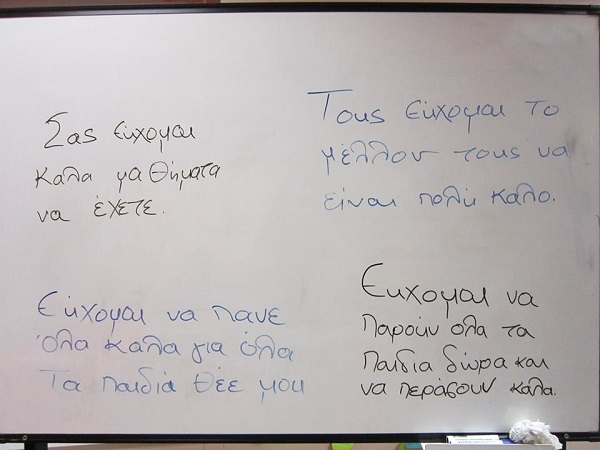 Σας εύχομαι
καλα μαθήματα
να έχετε.
Τους εύχομαι το
μέλλον τους να
είναι πολή καλο.
Εύχομαι να πανε
όλα καλα για όλα
Τα παιδιά θέε μου
Εύχομαι να
Παρούν ολα τα
Παιδια δώρα και
να περάσουν καλα.